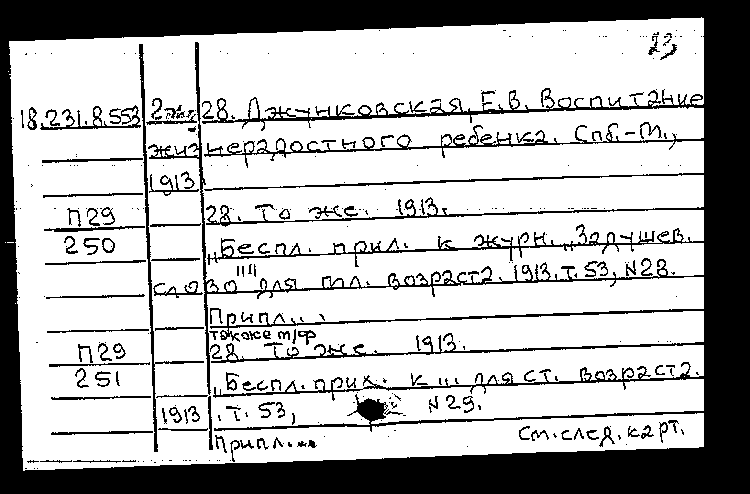 23
18.231.8.553 2 экз. 28. Джунковская, Е.В. Воспитание
жизнерадостного ребенка. Спб.-М.,
1913
П29 28. То же. 1913.
250 „Беспл. прил. к журн. „Задушев.
слово"" для мл. возраста. 1913. т. 53, N28.
Припл...
также м/ф
П29 28. То же. 1913.
251 „Беспл. прил. к ... для ст. возраста.
1913. т. 53, N29.
Припл... См. след. карт.